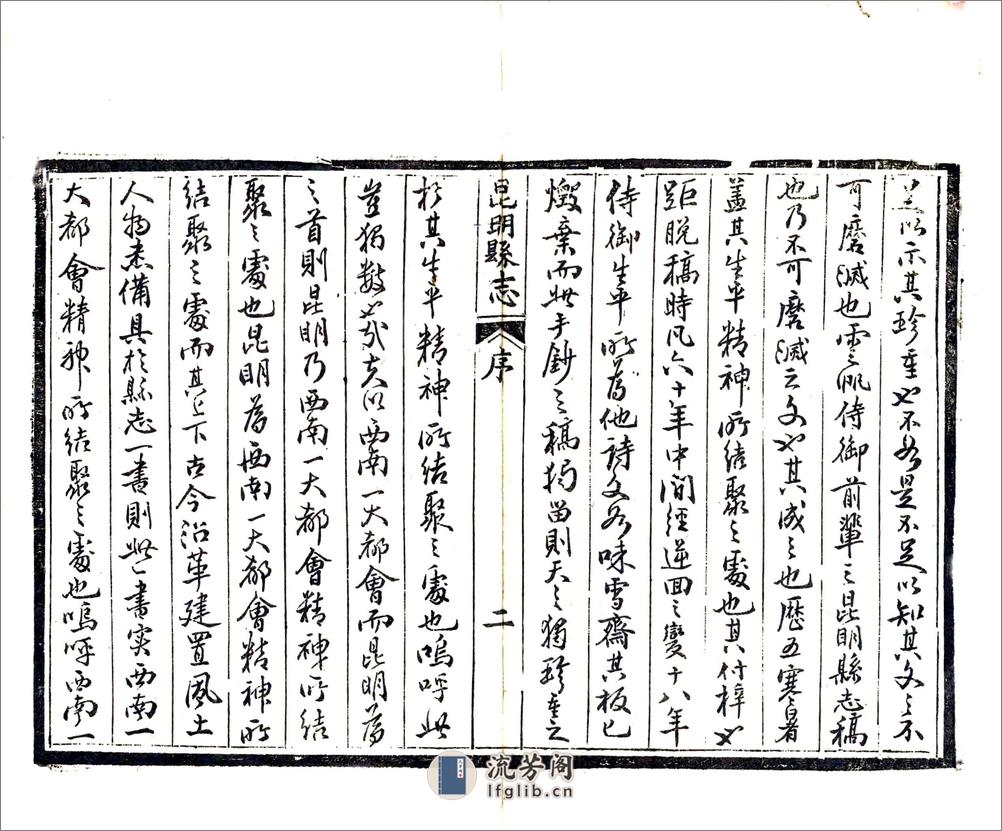 並以示其珍重也不如是不足以知其文之不
可磨滅也雲帆侍御前輩之昆明縣志稿
也乃不可磨滅之文也其成之也歷五寒暑
蓋其生平精神所結聚之處也其付梓也
距脫稿時凡六十年中間經逆回之變十八年
侍御生平所著他詩文如味雪齋其板已
燬棄而此手鈔之稿獨留則天之獨珍重之
昆明縣志
序
二
於其生平精神所結聚之處也嗚呼此
豈獨數也哉夫以西南一大都會而昆明為
之首則昆明乃西南一大都會精神所結
聚之處也昆明為西南一大都會精神所
結聚之處而其上下古今沿革建置風土
人物悉備具於縣志一書則此一書實西南一
大都會精神所結聚之處也嗚呼西南一
流芳阁
lfglib.cn